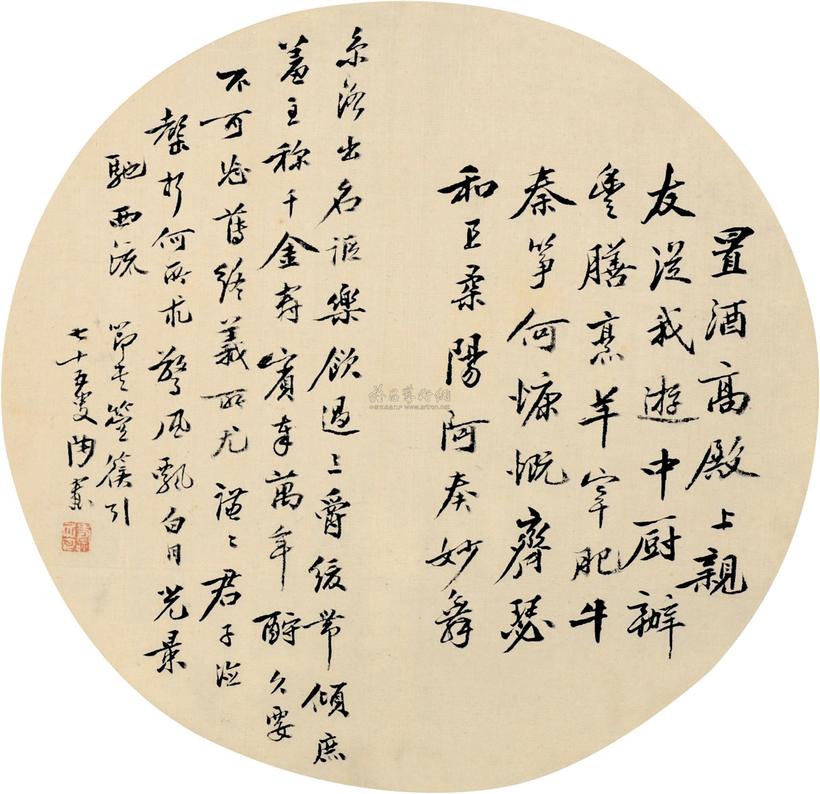 置酒高殿上親
友從我遊中厨辦
豐膳烹羊宰肥牛
秦箏何慷慨齊瑟
和且柔陽阿奏妙舞
京洛出名謳樂飲過三爵緩帶傾庶
羞主稱千金壽賓奉萬年酧久要
不可忘薄終義所尤謙々君子德
磬折何所求驚風飄白日光景
馳西流 節書箜篌引
七十五叟陶